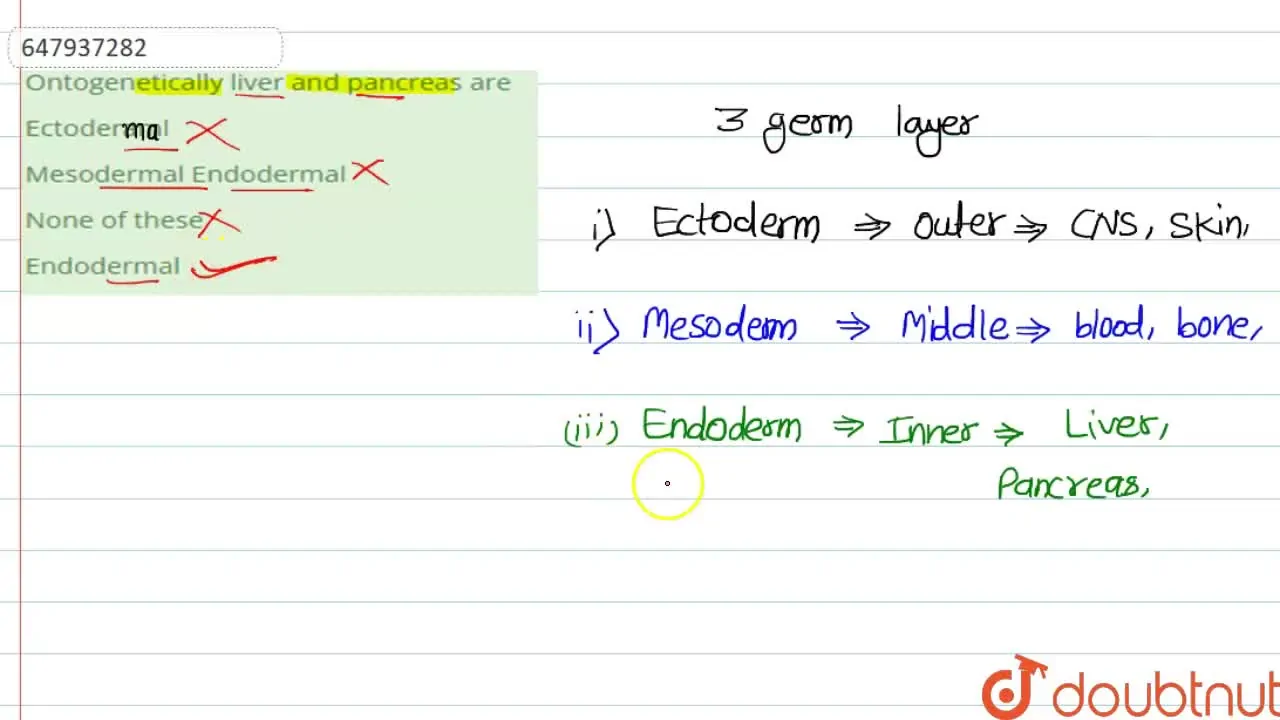 647937282
Ontogenetically liver and pancreas are
Ectodermal
ma
Mesodermal Endodermal
None of these
Endodermal
3 germ layer
i) Ectoderm ⇒ outer ⇒ CNS, Skin,
ii) Mesoderm ⇒ Middle ⇒ blood, bone,
(iii) Endoderm ⇒ Inner ⇒ Liver,
Pancreas,
doubtnut